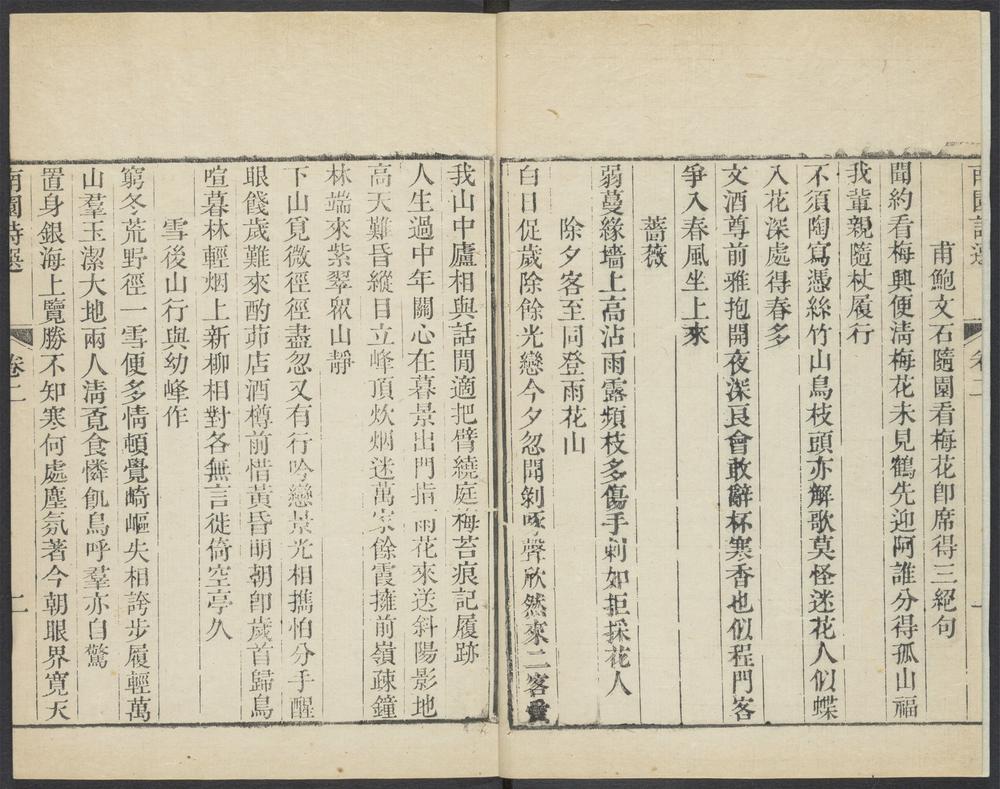 甫鮑文石隨園看梅花卽席得三絕句
聞約看梅興便淸梅花未見鶴先迎阿誰分得孤山福
我輩親隨杖履行
不須陶寫憑絲竹山鳥枝頭亦解歌莫怪迷花人似蝶
入花深處得春多
文酒尊前雅抱開夜深良會敢辭杯寒香也似程門客
爭入春風坐上來
薔薇
弱蔓緣墻上高沾雨露頻枝多傷手刺如拒採花人
除夕客至同登雨花山
白日促歲除餘光戀今夕忽聞剝啄聲欣然來二客愛
我山中廬相與話閒適把臂繞庭梅苔痕記履跡
人生過中年關心在暮景出門指雨花來送斜陽影地
高天難昏縱目立峰頂炊烟迷萬家餘霞擁前嶺疎鐘
林端來紫翠眾山靜
下山覓微徑徑盡忽又有行吟戀景光相攜怕分手醒
眼餞歲難來酌茆店酒樽前惜黃昏明朝卽歲首歸鳥
喧暮林輕烟上新柳相對各無言徙倚空亭久
雪後山行與幼峰作
窮冬荒野徑一雪便多情頓覺崎嶇失相誇步履輕萬
山羣玉潔大地兩人淸覔食憐飢鳥呼羣亦自驚
置身銀海上覽勝不知寒何處塵氛著今朝眼界寬天
南園詩選 卷二 二